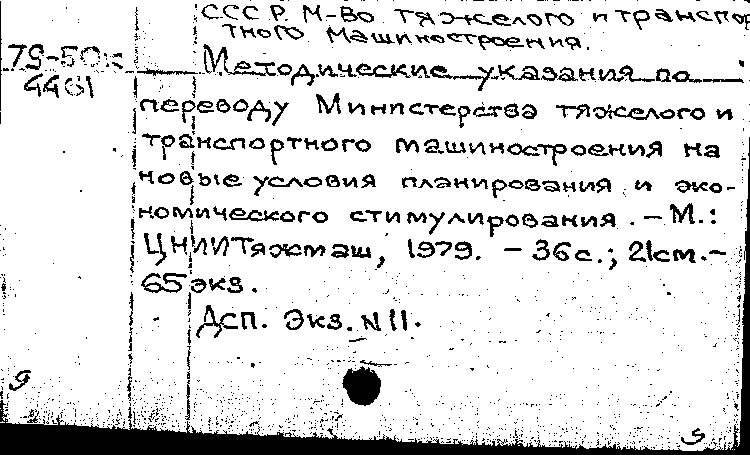 СССР. М-во тяжелого и транспор
тного машиностроения.
79-50к
4461
Методические указания по
переводу Министерства тяжелого и
транспортного машиностроения на
новые условия планирования и эко-
номического стимулирования. - М.:
ЦНИИТяжмаш, 1979. - 36с.; 21см.-
65 экз.
Дсп. Экз. N 11.